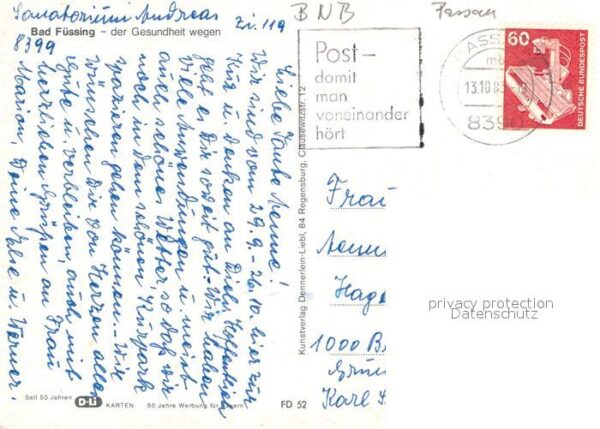 Sanatorium Andreas
Zi. 119
Bad Füssing – der Gesundheit wegen
8399
Liebe Tante Aenne!
Wir sind vom 29.9.-26.10. hier zur
Kur u. denken an Dich. Hoffentlich
geht es Dir soweit gut. Wir haben
viele Anwendungen u. meist
auch schönes Wetter so daß wir
noch in dem schönen Kurpark
spazieren gehen können. Wir
wünschen Dir von Herzen alles
Gute u. verbleiben auch mit
herzlichen Grüßen an Frau
Marion, Deine Ilse u. Werner.
Seit 50 Jahren
D-Li
KARTEN
50 Jahre Werbung für
FD 52
Kunstverlag Dennerlein-Liebl, 84 Regensburg, Clausewitzstr. 12
BNB
Passau
Post-
damit
man
voneinander
hört
PASS
13.10.8
8390
60
DEUTSCHE BUNDESPOST
Frau
Aenn
Hage
1000 B
Karl
privacy protection
Datenschutz